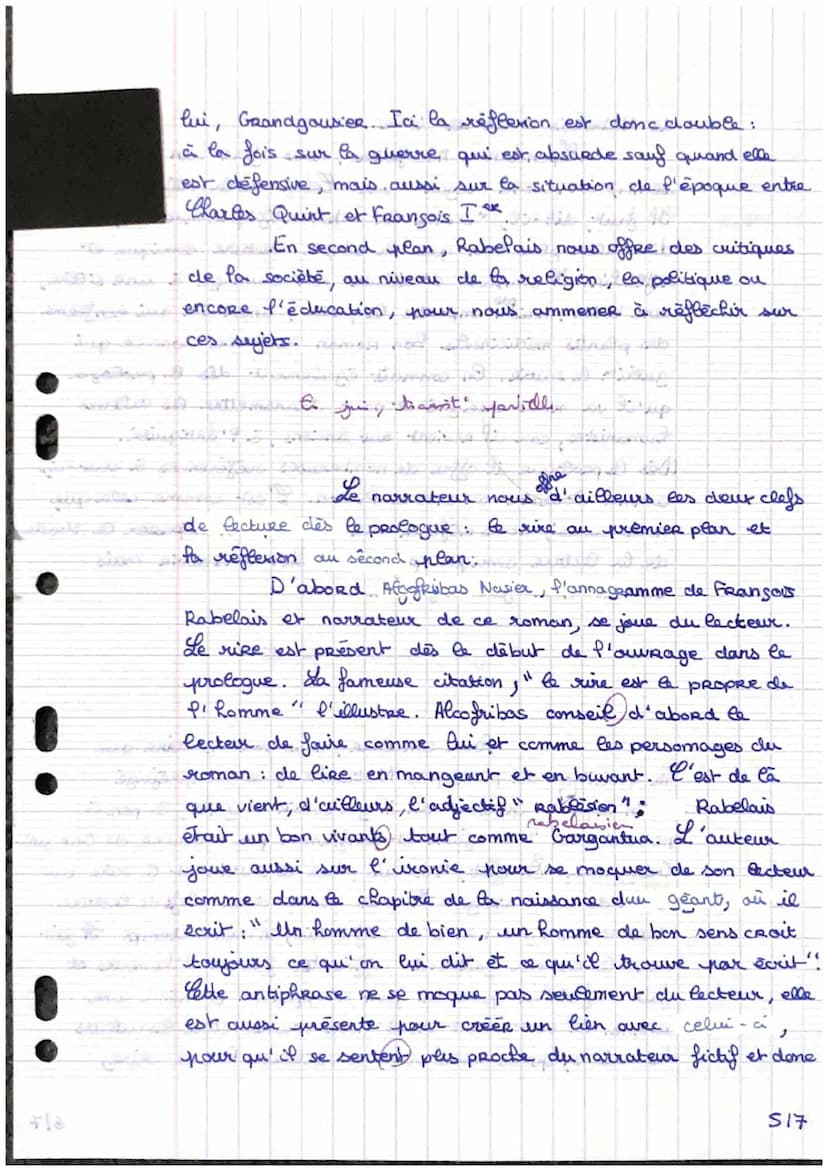 lui, Grandgousier. Ici la réflexion est donc double :
à la fois sur la guerre, qui est absurde sauf quand elle
est défensive, mais aussi sur la situation de l'époque entre
Charles Quint et François Ier
En second plan, Rabelais nous offre des critiques
de la société, au niveau de la religion, la politique ou
encore l'éducation, pour nous ammener à réfléchir sur
ces sujets.
Ce qui,
Le narrateur nous offre d'ailleurs les deux clefs
de lecture dès le prologue : le rire au premier plan et
la réflexion au second plan.
D'abord Alcofribas Nasier, l'annagramme de François
Rabelais et narrateur de ce roman, se joue du lecteur.
Le rire est présent dès le début de l'ouvrage dans le
prologue. La fameuse citation, " le rire est le propre de
l'homme " l'illustre. Alcofribas conseil d'abord le
lecteur de faire comme lui et comme les personnages du
roman : de lire en mangeant et en buvant. C'est de là
que vient, d'ailleurs, l'adjectif " rablésien " ; Rabelais
rabelaisien
était un bon vivants tout comme Gargantua. L'auteur
joue aussi sur l'ironie pour se moquer de son lecteur
comme dans le chapitre de la naissance du géant, où il
écrit : " Un homme de bien, un homme de bon sens croit
toujours ce qu'on lui dit et ce qu'il trouve par écrit ".
Cette antiphrase ne se moque pas seulement du lecteur, elle
est aussi présente pour créer un lien avec celui-ci,
pour qu'il se sentent plus proche du narrateur fictif et donc
5/7